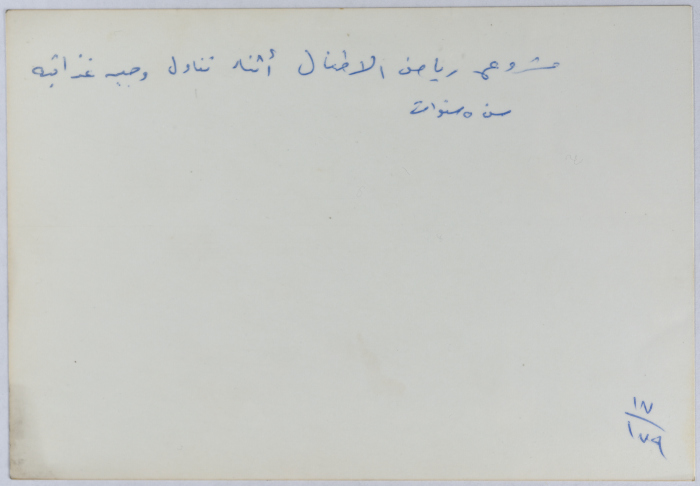 مشروع رياض الاطفال أثناء تناول وجبه غذائيه
سن ٥ سنوات
١٨
١٧٩